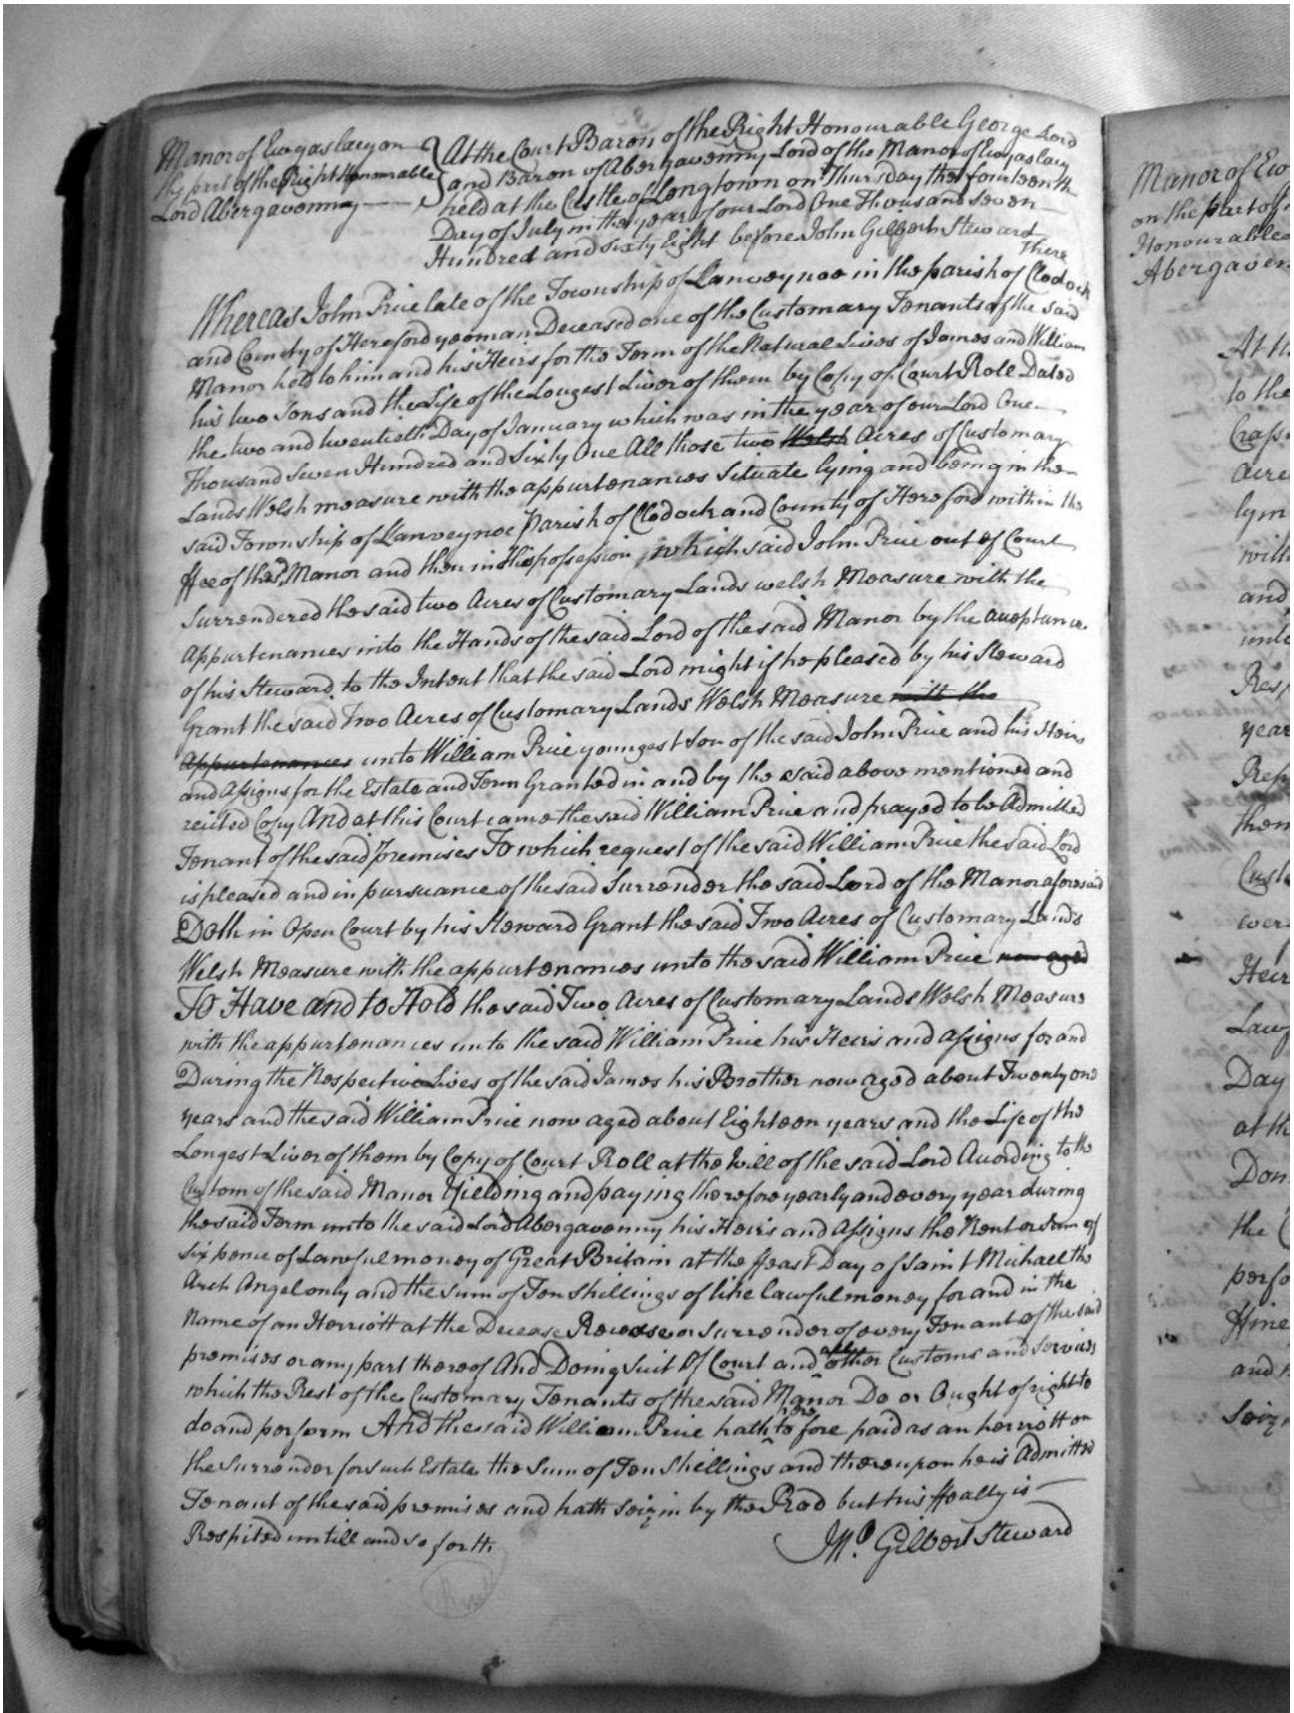 Manor of Ewyas lacy on
the part of the Right Honourable
Lord Abergavenny
At the Court Baron of the Right Honourable George Lord
and Baron of Abergavenny Lord of the Manor of Ewyas lacy
held at the Castle of Longtown on Thursday the fourteenth
Day of July in the year of our Lord One Thousand Seven
Hundred and sixty Eight before John Gilbert Steward
There
Whereas John Price late of the Township of Lanveynoe in the parish of Clodock
and County of Hereford yeoman Deceased one of the Customary Tenants of the said
Manor held to him and his Heirs for the Term of the Natural Lives of James and William
his two Sons and the Life of the Longest Liver of them by Copy of Court Role Dated
the two and twentieth Day of January which was in the year of our Lord One
Thousand Seven Hundred and Sixty One All those two Welsh Acres of Customary
Lands Welsh measure with the appurtenances Situate lying and being in the
said Township of Lanveynoe Parish of Clodock and County of Hereford within the
ffee of the sd. Manor and then in His possession which said John Price out of Court
Surrendered the said two Acres of Customary Lands welsh Measure with the
Appurtenances into the Hands of the said Lord of the said Manor by the acceptance
of his Steward to the Intent that the said Lord might if he pleased by his Steward
Grant the said Two Acres of Customary Lands Welsh Measure with the
Appurtenances unto William Price youngest Son of the said John Price and his Heirs
and Assigns for the Estate and Term Granted in and by the said above mentioned and
recited Copy And at this Court came the said William Price and prayed to be Admitted
Tenant of the said premises To which request of the said William Price the said Lord
is pleased and in pursuance of the said Surrender the said Lord of the Manor aforesaid
Doth in Open Court by his Steward Grant the said Two Acres of Customary Lands
Welsh Measure with the appurtenances unto the said William Price now aged
To Have and to Hold the said Two Acres of Customary Lands Welsh Measure
with the appurtenances unto the said William Price his Heirs and assigns for and
During the Respective Lives of the said James his Brother now aged about Twenty one
years and the said William Price now aged about Eighteen years and the Life of the
Longest Liver of them by Copy of Court Roll at the Will of the said Lord According to the
Custom of the said Manor Yielding and paying therefore yearly and every year during
the said Term unto the said Lord Abergavenny his Heirs and Assigns the Rent or Sum of
six pence of Lawful money of Great Britain at the ffeast Day of Saint Michael the
Arch Angel only and the Sum of Ten shillings of like lawful money for and in the
Name of an Herriott at the Decease Rewese or Surrender of every Tenant of the said
premises or any part thereof And Doing Suit Of Court and all other Customs and Services
which the Rest of the Customary Tenants of the said Manor Do or Ought of right to
do and perform And the said William Price hath here to fore paid as an herriott on
the Surrender for such Estate the Sum of Ten Shillings and thereupon he is Admitted
Tenant of the said premises and hath Seizin by the Rod but his ffealty is
Respited untill and so forth
Jno. Gilbert Steward
Manor of Ew
on the part of
Honourable
Abergaven
At th
to the
acre
lyin
will
and
unto
Resp
year
Resp
them
Custo
were
Heir
Law
Day
at th
Don
the C
perfo
Hine
and
Seiz